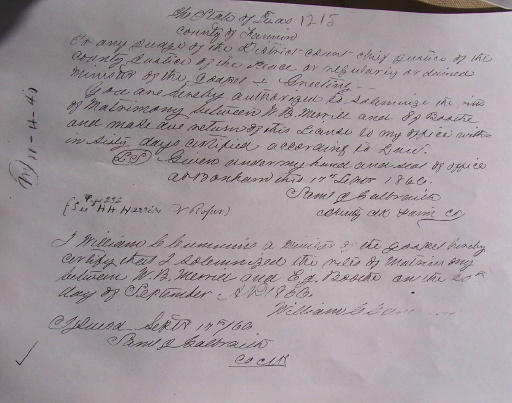 The State of Texas 1215
County of Fannin
To any Judge of the District Court Chief Justice of the
County Justice of the Peace or regularly ordained
Minister of the Gospel Greeting
You are hereby authorized to solemnize the rites
of Matrimony between W. B. Merrill and
and make due return of this License to my office with
in Sixty days certified according to Law.
Given under my hand and seal of office
at Bonham this 17th Sept 1866.
Saml Galbraith
County Clk Fann Co
H H Harris
I William C Cummins a Minister of the Gospel hereby
certify that I solemnized the rites of Matrimony
between W. B. Merrill and on the 20th
day of September A D 1866.
William C
Issued Sept 17th/66
Saml Galbraith
Co Clk
11-14-41